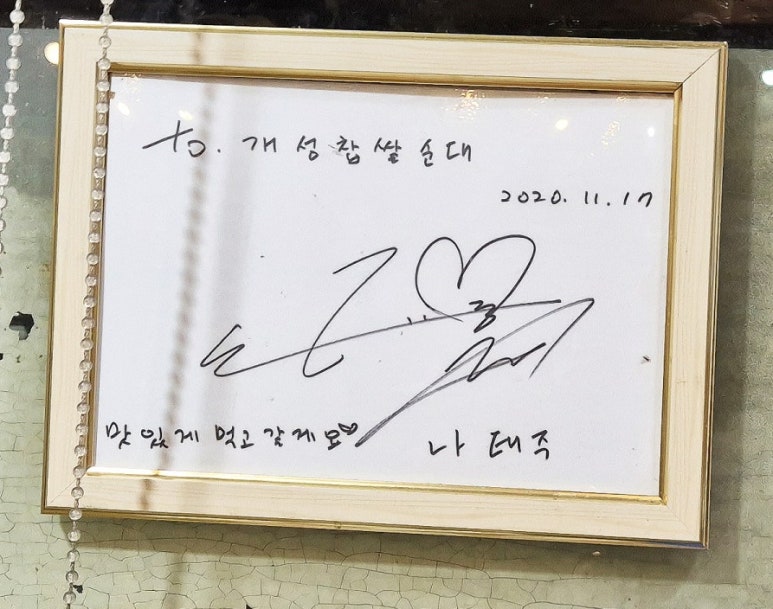 to. 개성찹쌀순대
2020. 11. 17
맛있게 먹고 갈게요♡
나태주